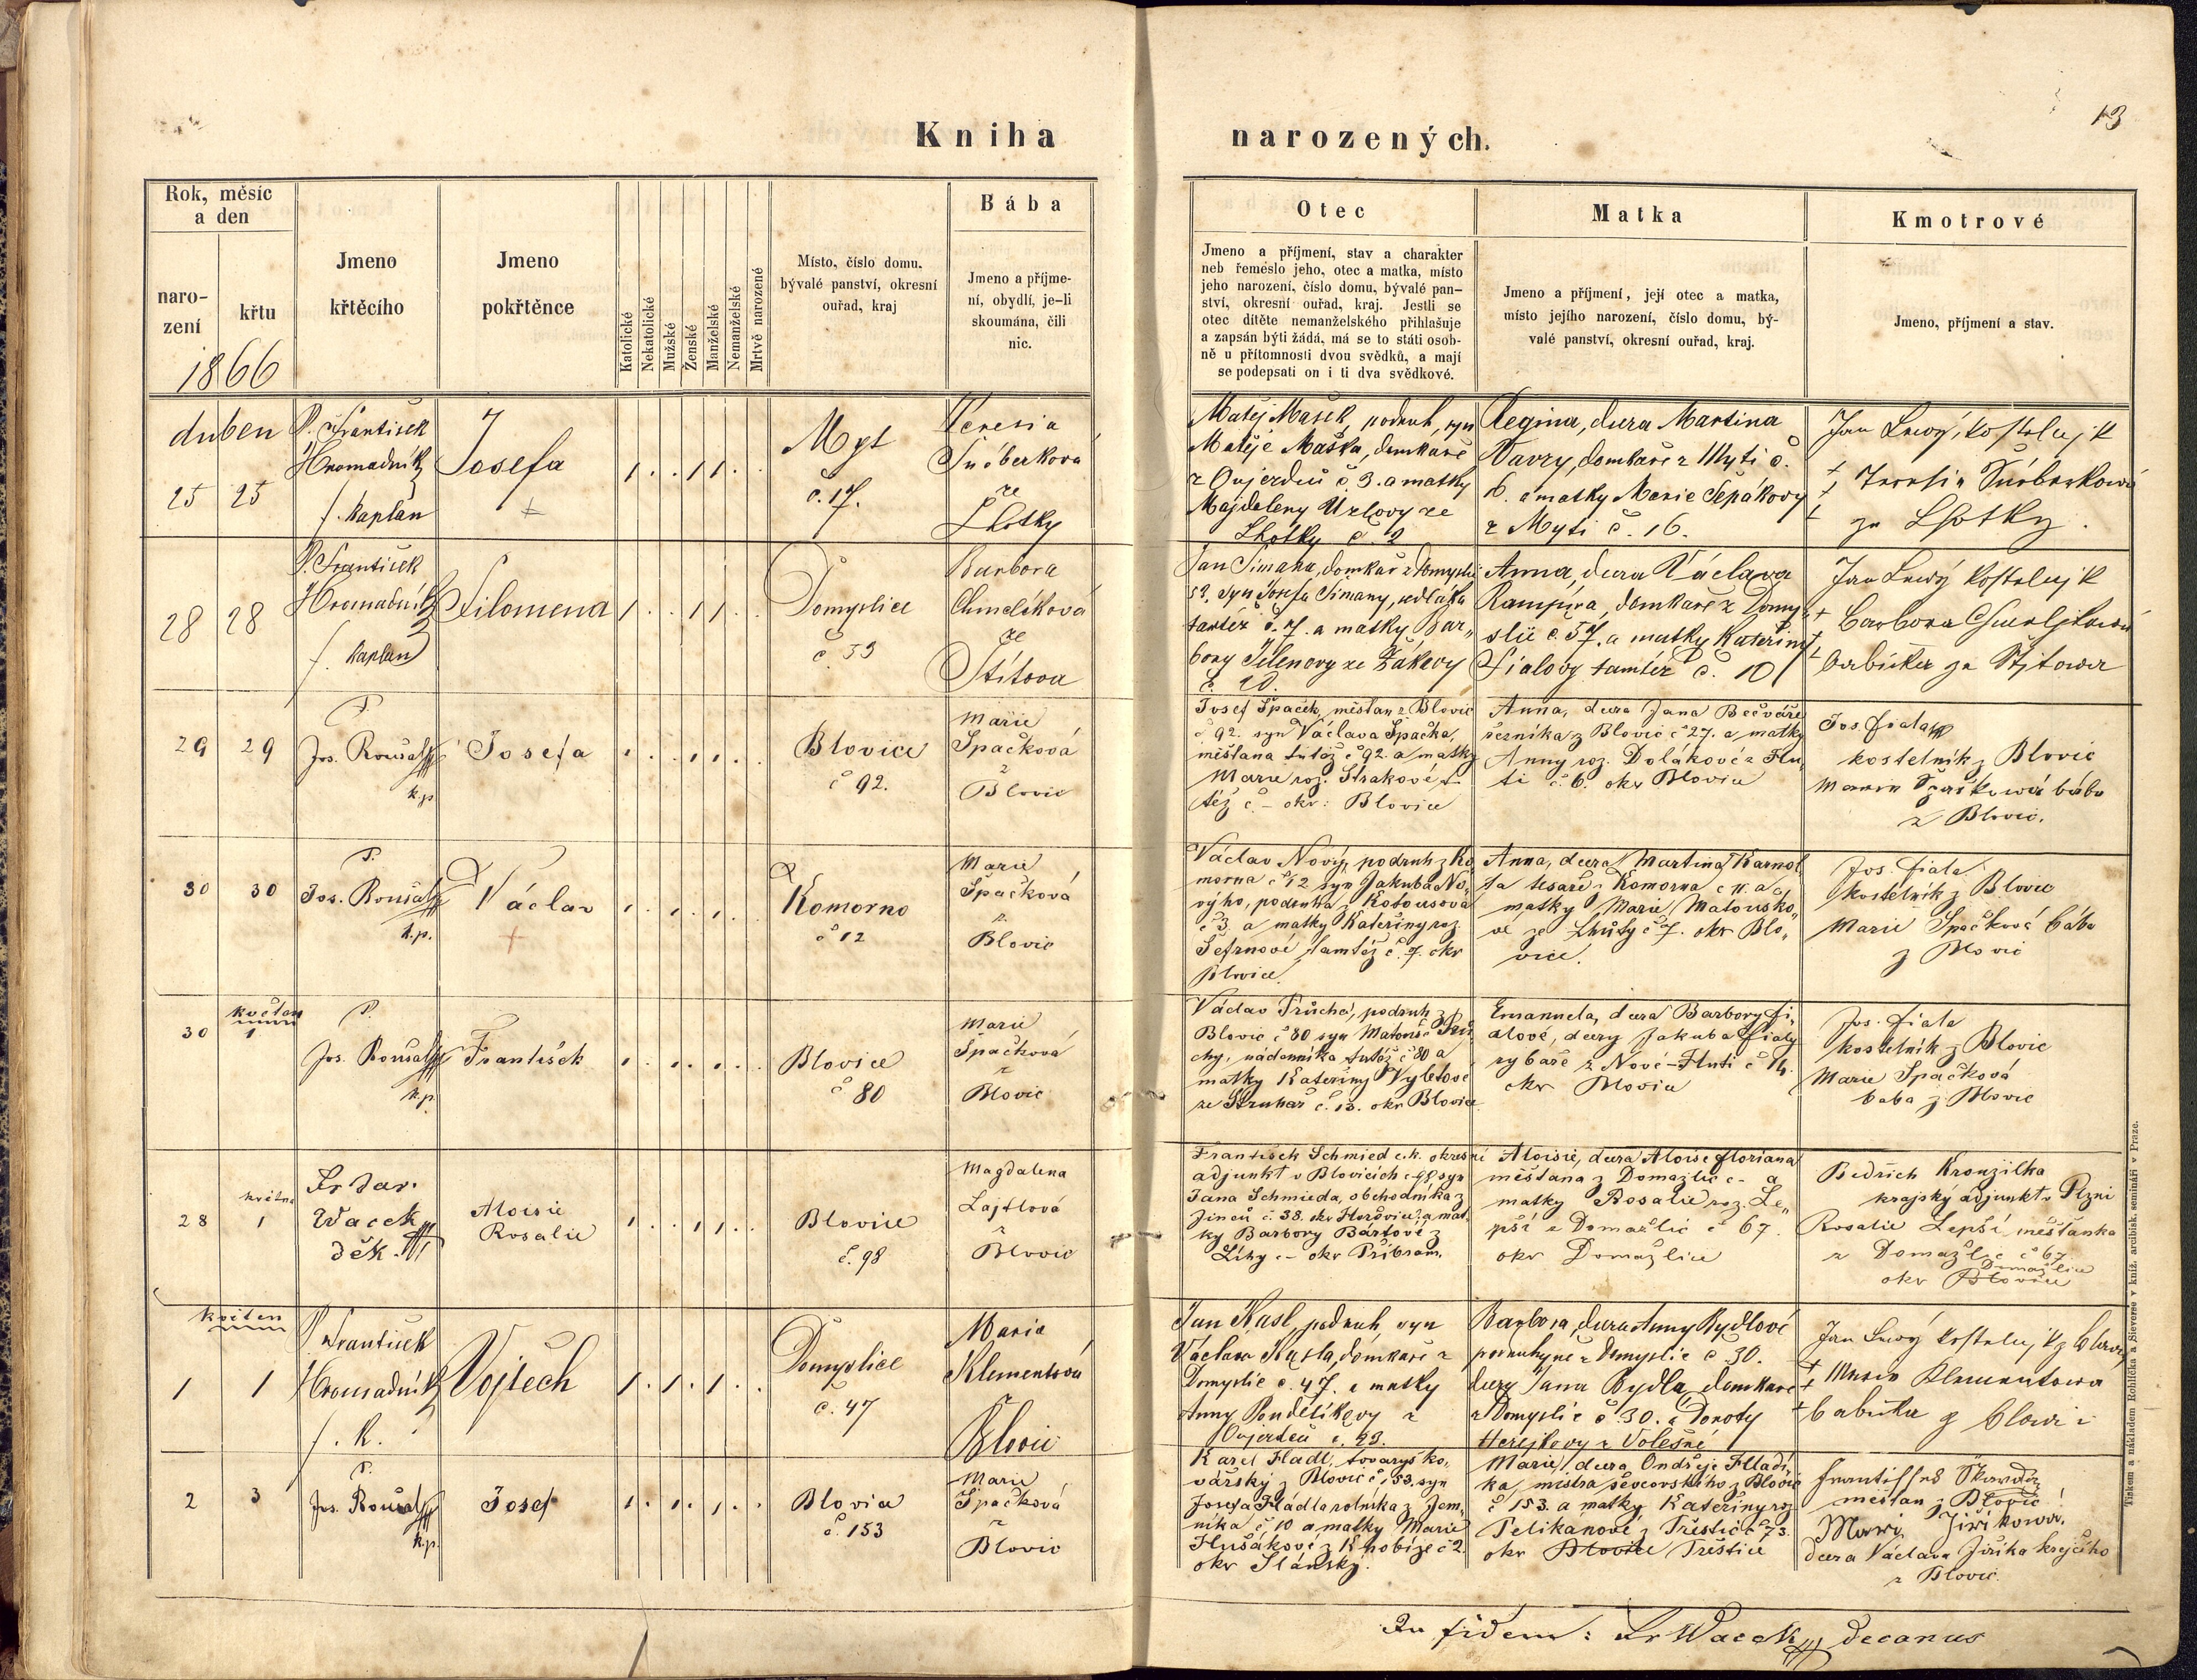 13
Kniha narozených.
Rok, měsíc
a den
naro-
zení
křtu
1866
Jmeno
křtěcího
Jmeno
pokřtěnce
Katolické
Nekatolické
Mužské
Ženské
Manželské
Nemanželské
Mrtvě narozené
Místo, číslo domu,
bývalé panství, okresní
ouřad, kraj
Bába
Jmeno a příjme-
ní, obydlí, je-li
skoumána, čili
nic.
Otec
Jmeno a příjmení, stav a charakter
neb řemeslo jeho, otec a matka, místo
jeho narození, číslo domu, bývalé pan-
ství, okresní ouřad, kraj. Jestli se
otec dítěte nemanželského přihlašuje
a zapsán býti žádá, má se to státi osob-
ně u přítomnosti dvou svědků, a mají
se podepsati on i ti dva svědkové.
Matka
Jmeno a příjmení, její otec a matka,
místo jejího narození, číslo domu, bý-
valé panství, okresní ouřad, kraj.
Kmotrové
Jmeno, příjmení a stav.
duben
25 25
P. František
Hromadník
f. kaplan
Josefa
Myt
č. 17.
Teresia
ze
Lhotky
Matěj Mašek, podruh, syn
Matěje Maška, domkaře
č 3. a matky
Majdaleny
ze
Lhotky č. 2
Regina, dcera Martina
Vavry, domkaře z Mytí č.
16. a matky Marie
z Mytí č. 16.
Jan Lewý, kostelnjk
ze Lhotky.
28 28
P. František
Hromadník
f. kaplan
Filomena
Domyslice
č 59
Barbora
Chmelíková
ze
Štítova
Jan Šimana, domkař z Domyslic
59. syn Josefa Šimany, sedláka
tamtéž č. 7. a matky Bar„
bory
ze Žákovy
č. 20.
Anna, dcera Václava
domkaře z Domy„
slic č 57. a matky Kateřiny
Fialovy tamtéž č. 10
Jan Lewý kostelnjk
Barbora Chmeljkowá
babička ze Stjtowa
29 29
P.
Jos. Roušal
k.p.
Josefa
Blovice
č 92.
Marie
Špačková
z
Blovic
Josef Špaček, měšťan z Blovic
č 92. syn Václava Špačka,
měšťana tutéž č 92. a matky
Marie roz. Strakové t.
též č - okr: Blovice
Anna, dcera Jana Bečváře
řezníka z Blovic č 27. a matky
Anny roz. Dolákové z Hu„
ti č. 6. okr Blovice
Jos. Fiala
kostelník z Blovic
Marie Špačkowá bába
z Blovic.
30 30
P.
Jos. Roušal
k.p.
Václav
Komorno
č 12
Marie
Špačková
z
Blovic
Václav Nový, podruh z Ko„
morna č 12 syn Jakuba No„
výho, podruha z Kotousova
č 3. a matky Kateřiny roz.
tamtéž č. 7. okr
Blovice.
Anna, dcera Martina
tesaře z Komorna č 11. a
matky Marie Matousko„
vé ze Lhůty č 7. okr Blo„
vice.
Jos. Fiala
kostelník z Blovic
Marie Špačková bába
z Blovic
30
květen
1
P.
Jos. Roušal
k.p.
František
Blovice
č 80
Marie
Špačková
z
Blovic
Václav Průcha, podruh z
Blovic č 80 syn Matouše Prů„
chy, nádenníka tutéž č 80 a
matky Kateřiny Vyletové
ze Struhař č. 13. okr Blovice
Emanuela, dcera Barbory Fi„
alové, dcery Jakuba Fialy
rybaře z Nové-Huti č 14.
okr Blovice
Jos. Fiala
kostelník z Blovic
Marie Špačková
baba z Blovic
28
května
1
Fr Jar.
Wacek
děk.
Aloisie
Rosalie
Blovice
č. 98
Magdalena
Lajtlová
z
Blovic
František Schmied c.k. okresní
adjunkt v Blovicích č 98 syn
Jana Schmieda, obchodníka z
Jinců č. 38. okr Hořovice, a mat„
ky Barbory Bártové z
č - okr Příbram.
Aloisie, dcera Aloise Floriana
měšťana z Domažlic č - a
matky Rosalie roz. Le„
pší z Domažlic č 67
okr Domažlice
Bedřich Kronzilka
krajský adjunkt v Plzni
Rosalie Lepší měšťanka
z Domažlic č 67.
Domažlice
okr Blovice
květen
1 1
P. František
Hromadník
f. k.
Vojtěch
Domyslice
č. 47
Maria
Klementová
z
Blovic
Jan Kasl, podruh syn
Václava Kasla, domkaře z
Domyslic č. 47. a matky
Anny Pondělíkovy z
č. 23.
Barbora, dcera Anny Rydlové
podruhyně z Domyslic č 30.
dcery Jana Rydla, domkaře
z Domyslic č. 30. a Doroty
z Volešné
Jan Lewý kostelnjk z Blowic
Marie Klementowa
babička z Blowic
2 3
P.
Jos. Roušal
k.p.
Josef
Blovice
č. 153
Marie
Špačková
z
Blovic
Karel Hadl, tovaryš ko„
vářský z Blovic č 153. syn
Josefa Hádla rolníka z Jem„
níka č 10 a matky Marie
Husákové z Knobíze č 2.
okr Slánský.
Marie, dcera Ondřeje Hladí„
ka, mistra ševcovského z Blovic
č 153. a matky Kateřiny roz
Pelikánové z Přestic č 73.
okr Blovice Přestice
František
měšťan z Blovic
Marie Jiříkowa.
dcera Václava Jiříka krejčího
z Blovic.
In fidem: Fr Wacek decanus
Tiskem a nákladem Rohlíčka a Sieverse v kníž. arcibisk. semináři v Praze.